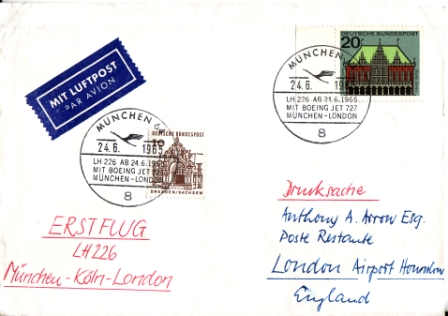 MIT LUFTPOST
PAR AVION
MÜNCHEN
24.6. 1965
LH 226 AB 24.6.1965
MIT BOEING JET 727
MÜNCHEN-LONDON
8
20
DEUTSCHE BUNDESPOST
MÜNCHEN
24.6. 1965
LH 226 AB 24.6.1965
MIT BOEING JET 727
MÜNCHEN-LONDON
8
10
DEUTSCHE BUNDESPOST
DRESDEN/SACHSEN
ERSTFLUG
LH 226
München-Köln-London
Drucksache
Anthony A. Arrow Esq.
Poste Restante
London Airport Hounslow
England